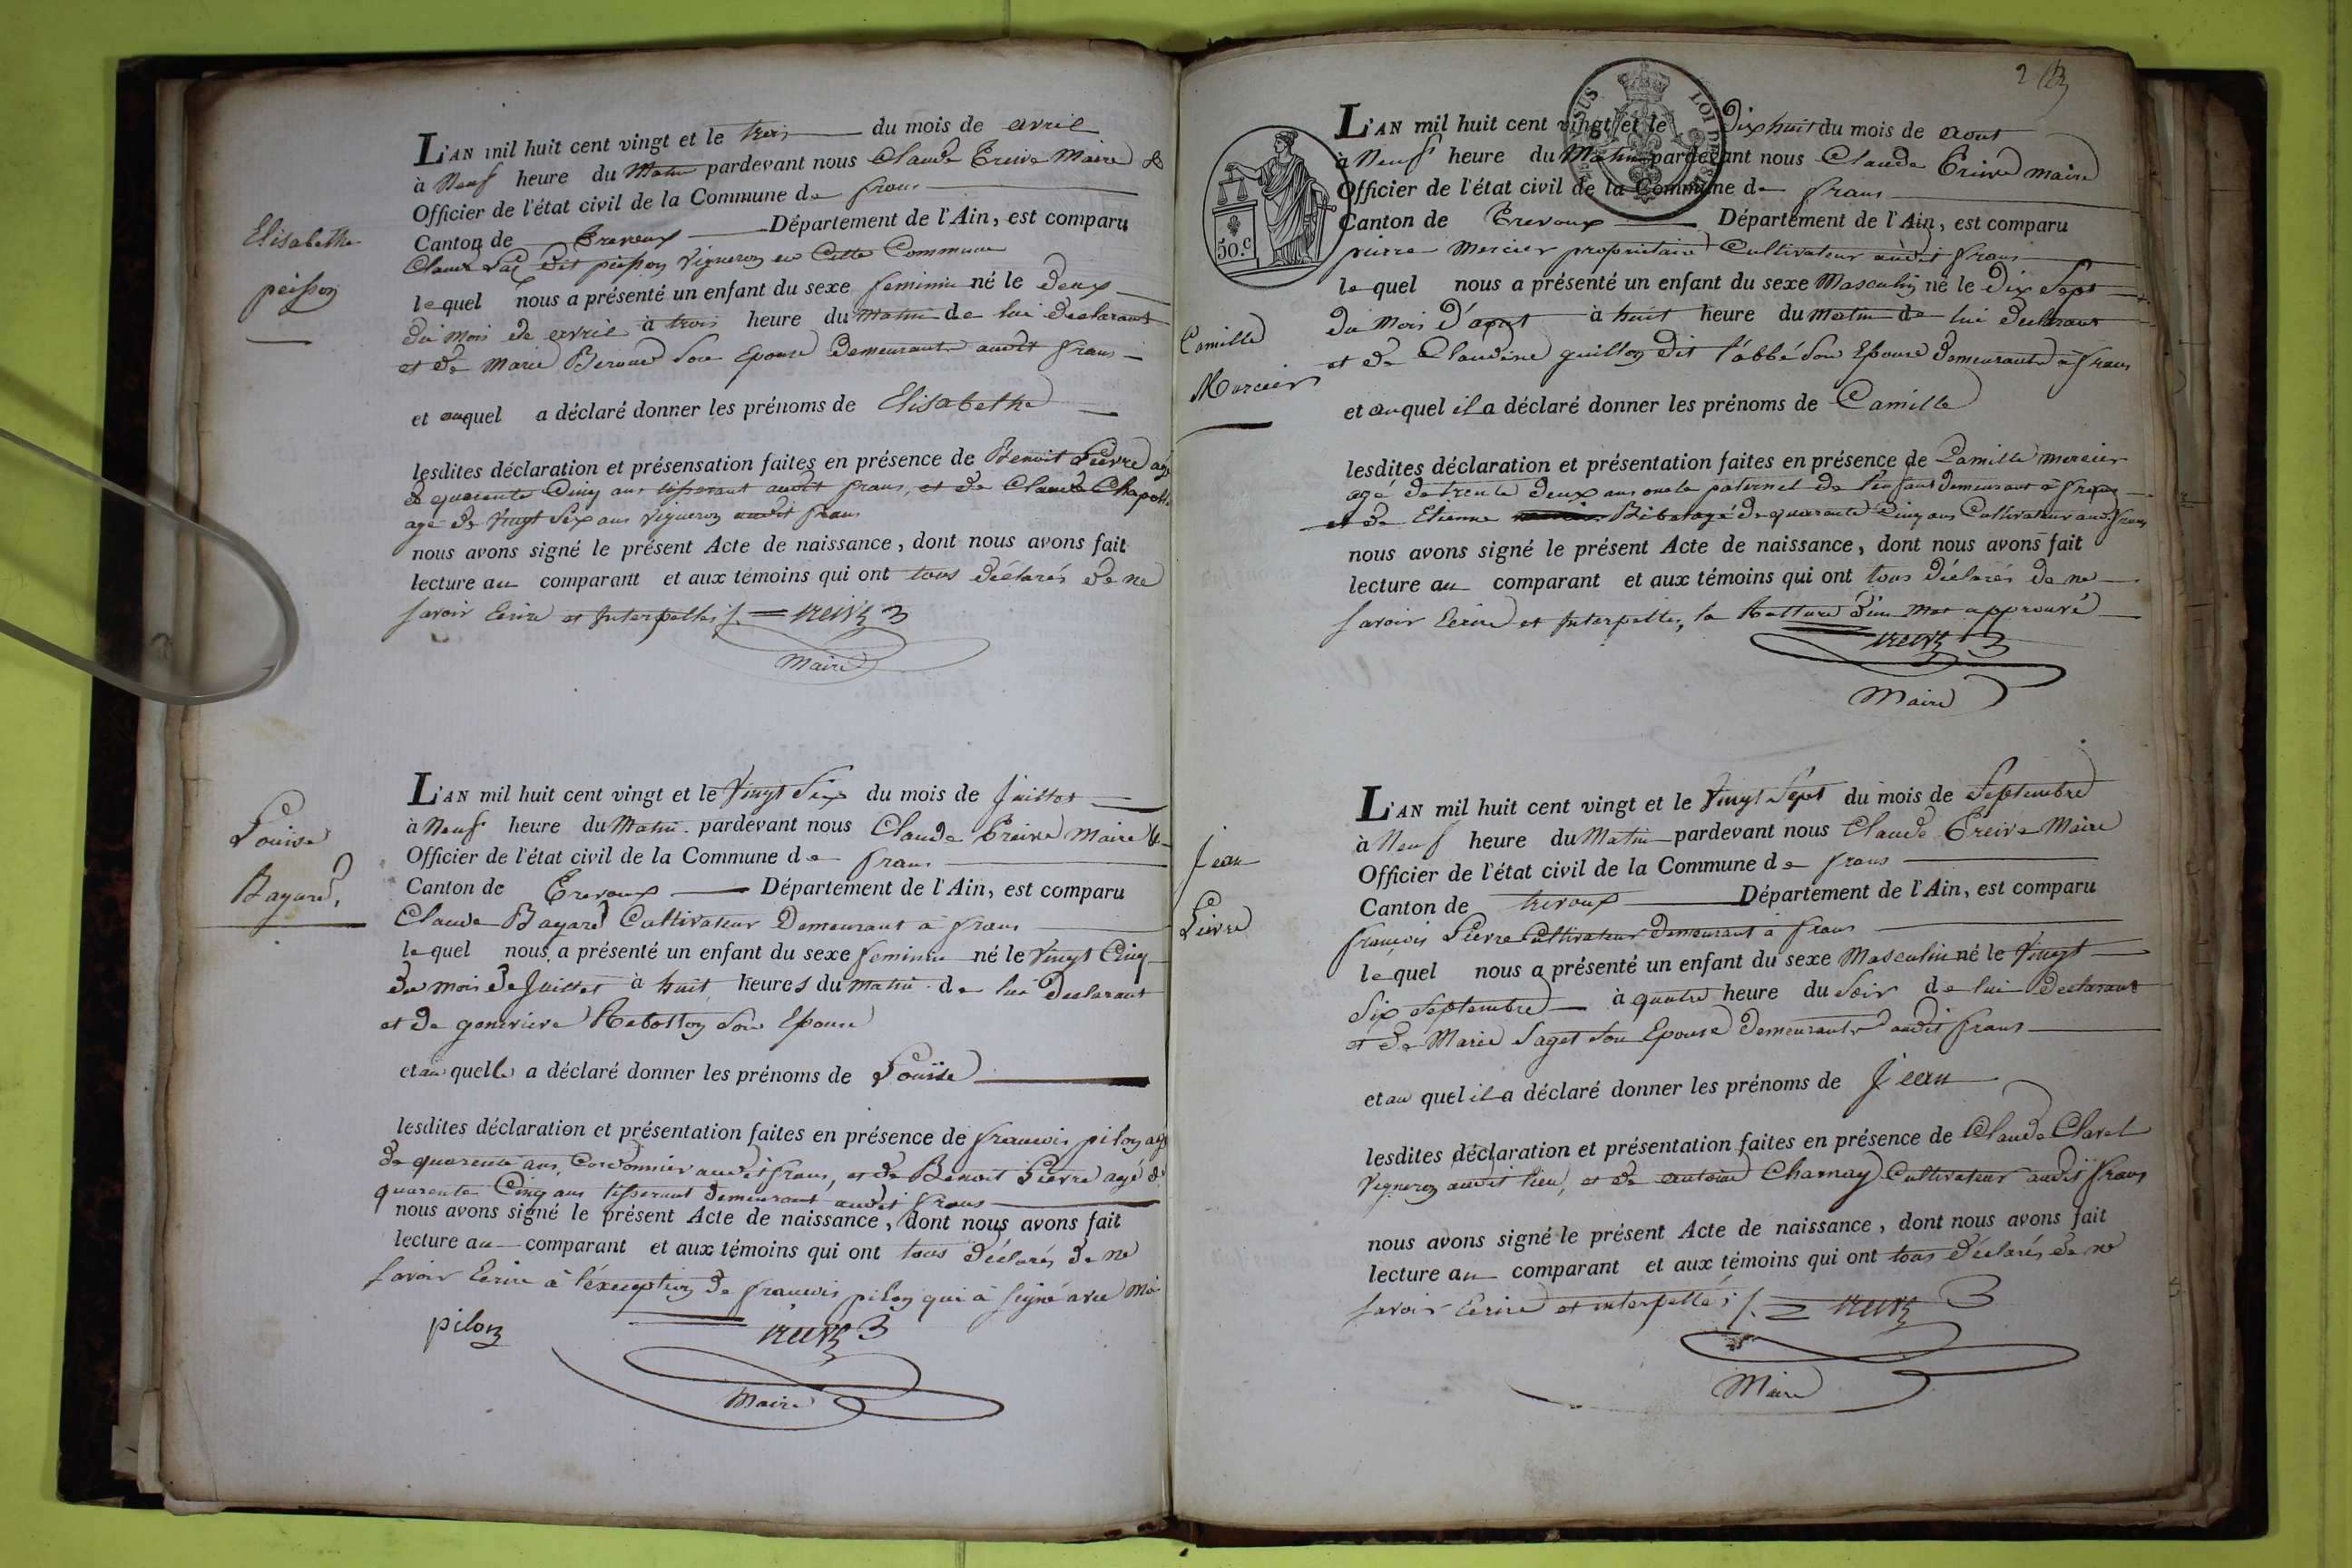 Elisabethe
peisson
L'AN mil huit cent vingt et le trois du mois de avril
à Neuf heure du Matin pardevant nous Claude Treive Maire &
Officier de l'état civil de la Commune de frans
Canton de Trevoux Département de l'Ain, est comparu
Claude dit peisson Vigneron en Cette Commune
lequel nous a présenté un enfant du sexe feminin né le Deux
du mois de avril à trois heure du matin de lui declarant
et de Marie Beroud son Epouse demeurante audit frans
et auquel a déclaré donner les prénoms de Elisabethe
lesdites déclaration et présensation faites en présence de Benoit Lievre agé
de quarente Cinq ans tisserant audit frans, et de Claude
agé de Vingt Six ans Vigneron audit frans
nous avons signé le présent Acte de naissance, dont nous avons fait
lecture au comparant et aux témoins qui ont tous déclarés de ne
savoir Ecrire et Interpellés /. = treive
Maire
Louise
Bayard,
L'AN mil huit cent vingt et le Vingt Six du mois de Juillet
à Neuf heure du Matin pardevant nous Claude Treive Maire &
Officier de l'état civil de la Commune de frans
Canton de Trevoux Département de l'Ain, est comparu
Claude Bayard Cultivateur Demeurant à frans
lequel nous a présenté un enfant du sexe feminin né le Vingt Cinq
du mois de Juillet à huit heures du matin de lui Declarant
et de genevieve Rebotton son Epouse
et au quelle a déclaré donner les prénoms de Louïse
lesdites déclaration et présentation faites en présence de francois pilon agé
de quarente ans, Cordonnier audit frans, et de Benoit Lievre agé de
quarente Cinq ans tisserant demeurant audit frans
nous avons signé le présent Acte de naissance, dont nous avons fait
lecture au comparant et aux témoins qui ont tous déclarés de ne
savoir Ecrire à l'éxception de francois pilon qui à signé avec moi
pilon treive
Maire
2
LOI DE
50.c
Camille
Mercier
L'AN mil huit cent vingt et le Dix huit du mois de Aout
à Neuf heure du Matin pardevant nous Claude Treive maire
Officier de l'état civil de la Commune de frans
Canton de Trevoux Département de l'Ain, est comparu
pierre Mercier propriétaire Cultivateur audit frans
lequel nous a présenté un enfant du sexe Masculin né le Dix Sept
du mois d'aout à huit heure du matin de lui declarant
et de Claudine guillon dit l'abbé son Epouse demeurante à frans
et auquel il a déclaré donner les prénoms de Camille
lesdites déclaration et présentation faites en présence de Camille mercier
agé de trente deux ans oncle paternel de l'enfant demeurant à frans
et de Etienne agé de quarante Cinq ans Cultivateur audit frans
nous avons signé le présent Acte de naissance, dont nous avons fait
lecture au comparant et aux témoins qui ont tous déclarés de ne
savoir Ecrire et Interpellés, la Rature d'un mot approuvé
treive
Maire
jean
Lievre
L'AN mil huit cent vingt et le Vingt Sept du mois de Septembre
à Neuf heure du Matin pardevant nous Claude Treive Maire
Officier de l'état civil de la Commune de frans
Canton de trevoux Département de l'Ain, est comparu
francois Lievre Cultivateur demeurant à frans
lequel nous a présenté un enfant du sexe Masculin né le Vingt
Six Septembre à quatre heure du Soir de lui declarant
et de Marie Saget son Epouse demeurante audit frans
et au quel il a déclaré donner les prénoms de Jean
lesdites déclaration et présentation faites en présence de Claude Clavel
Vigneron audit lieu, et de antoine Charnay Cultivateur audit frans
nous avons signé le présent Acte de naissance, dont nous avons fait
lecture au comparant et aux témoins qui ont tous déclarés de ne
savoir Ecrire et interpellé; /. = treive
Maire